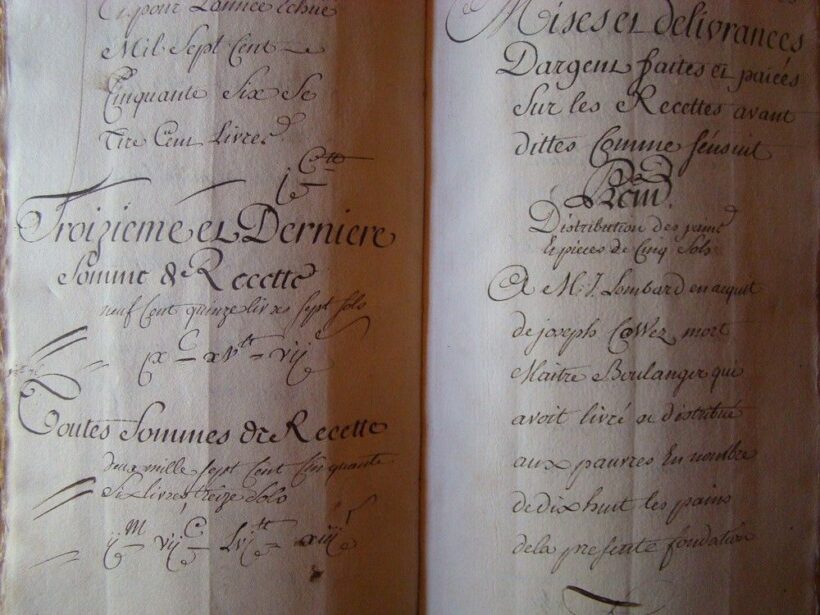 Et pour L'année Echue
Mil Sept Cent
Cinquante Six Se
Tire Cent Livres
j C tt
Troizieme et Derniere
Somme de Recette
neuf Cent quinze livres sept sols
jx C xv tt vij s
Toutes Sommes de Recette
deux mille sept Cent Cinquante
six livres treize solo
ij M vij C Lvj tt xiij s
Mises et delivrances
Dargent faites et paiées
Sur les Recettes avant
dittes Comme sensuit
Distribution des
Et pieces de Cinq Sols
A M. J. Lombard en acquit
de joseph CaWez mort
Maitre Boulanger qui
avoit livré et distribué
aux pauvres En nombre
de dix huit les pains
de la presente fondation